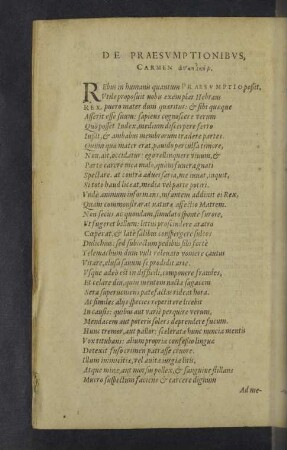 DE PRAESVMPTIONIBVS,
CARMEN
REbus in humanis quantum PRAESVMPTIO possit,
Vtile proposuit nobis exemplar Hebraeus
REX. puero mater dum queritur: & sibi quaeque
Asserit esse suum: sapiens cognoscere verum
Quò posset Iudex, medium discerpere ferro
Iussit, & ambabus membrorum tradere partes.
Quarum quae mater erat, pauido perculsa timore,
Non, ait, occidatur: ego
Parte carere mea malo, quàm funera nati
Spectare. at contrà aduersaria, me iuuat, inquit,
Si toto haud liceat, media vel parte potiri.
Vnde animum informans, infantem addicit ei Rex,
Quam commonstrarat naturae affectio Matrem.
Non secus ac quondam, simulato sponte furore,
Vt fugeret bellum: littus proscindere aratro
Coeperat, & latè salibus conspergere sulcos
Dulichius: sed subiectum pedibus sibi factò
Telemachum dum vult reuocato vomere tantùm
Vitare, elusa sanum se prodidit arte.
Vsque adeò est in difficili, componere fraudes,
Et celare diu, quin mentem nocta sagacem
Sera superueniens patefactura
At similes alijs species reperire licebit
In causis: quibus aut varij perquire verum,
Mendacem aut poteris solers deprendere fucum.
Hunc tremor, aut pallor: scelerata hunc nuncia mentis
Vox titubans: alium propria confessio lingua
Detexit fuso crimen patrasse cruore.
Illum inimicitiae, vel anteiurgia litis,
Atque minae, aut morsum pollex, & sanguine stillans
Mucro suspectum faciens & carcere dignum
Ad me-